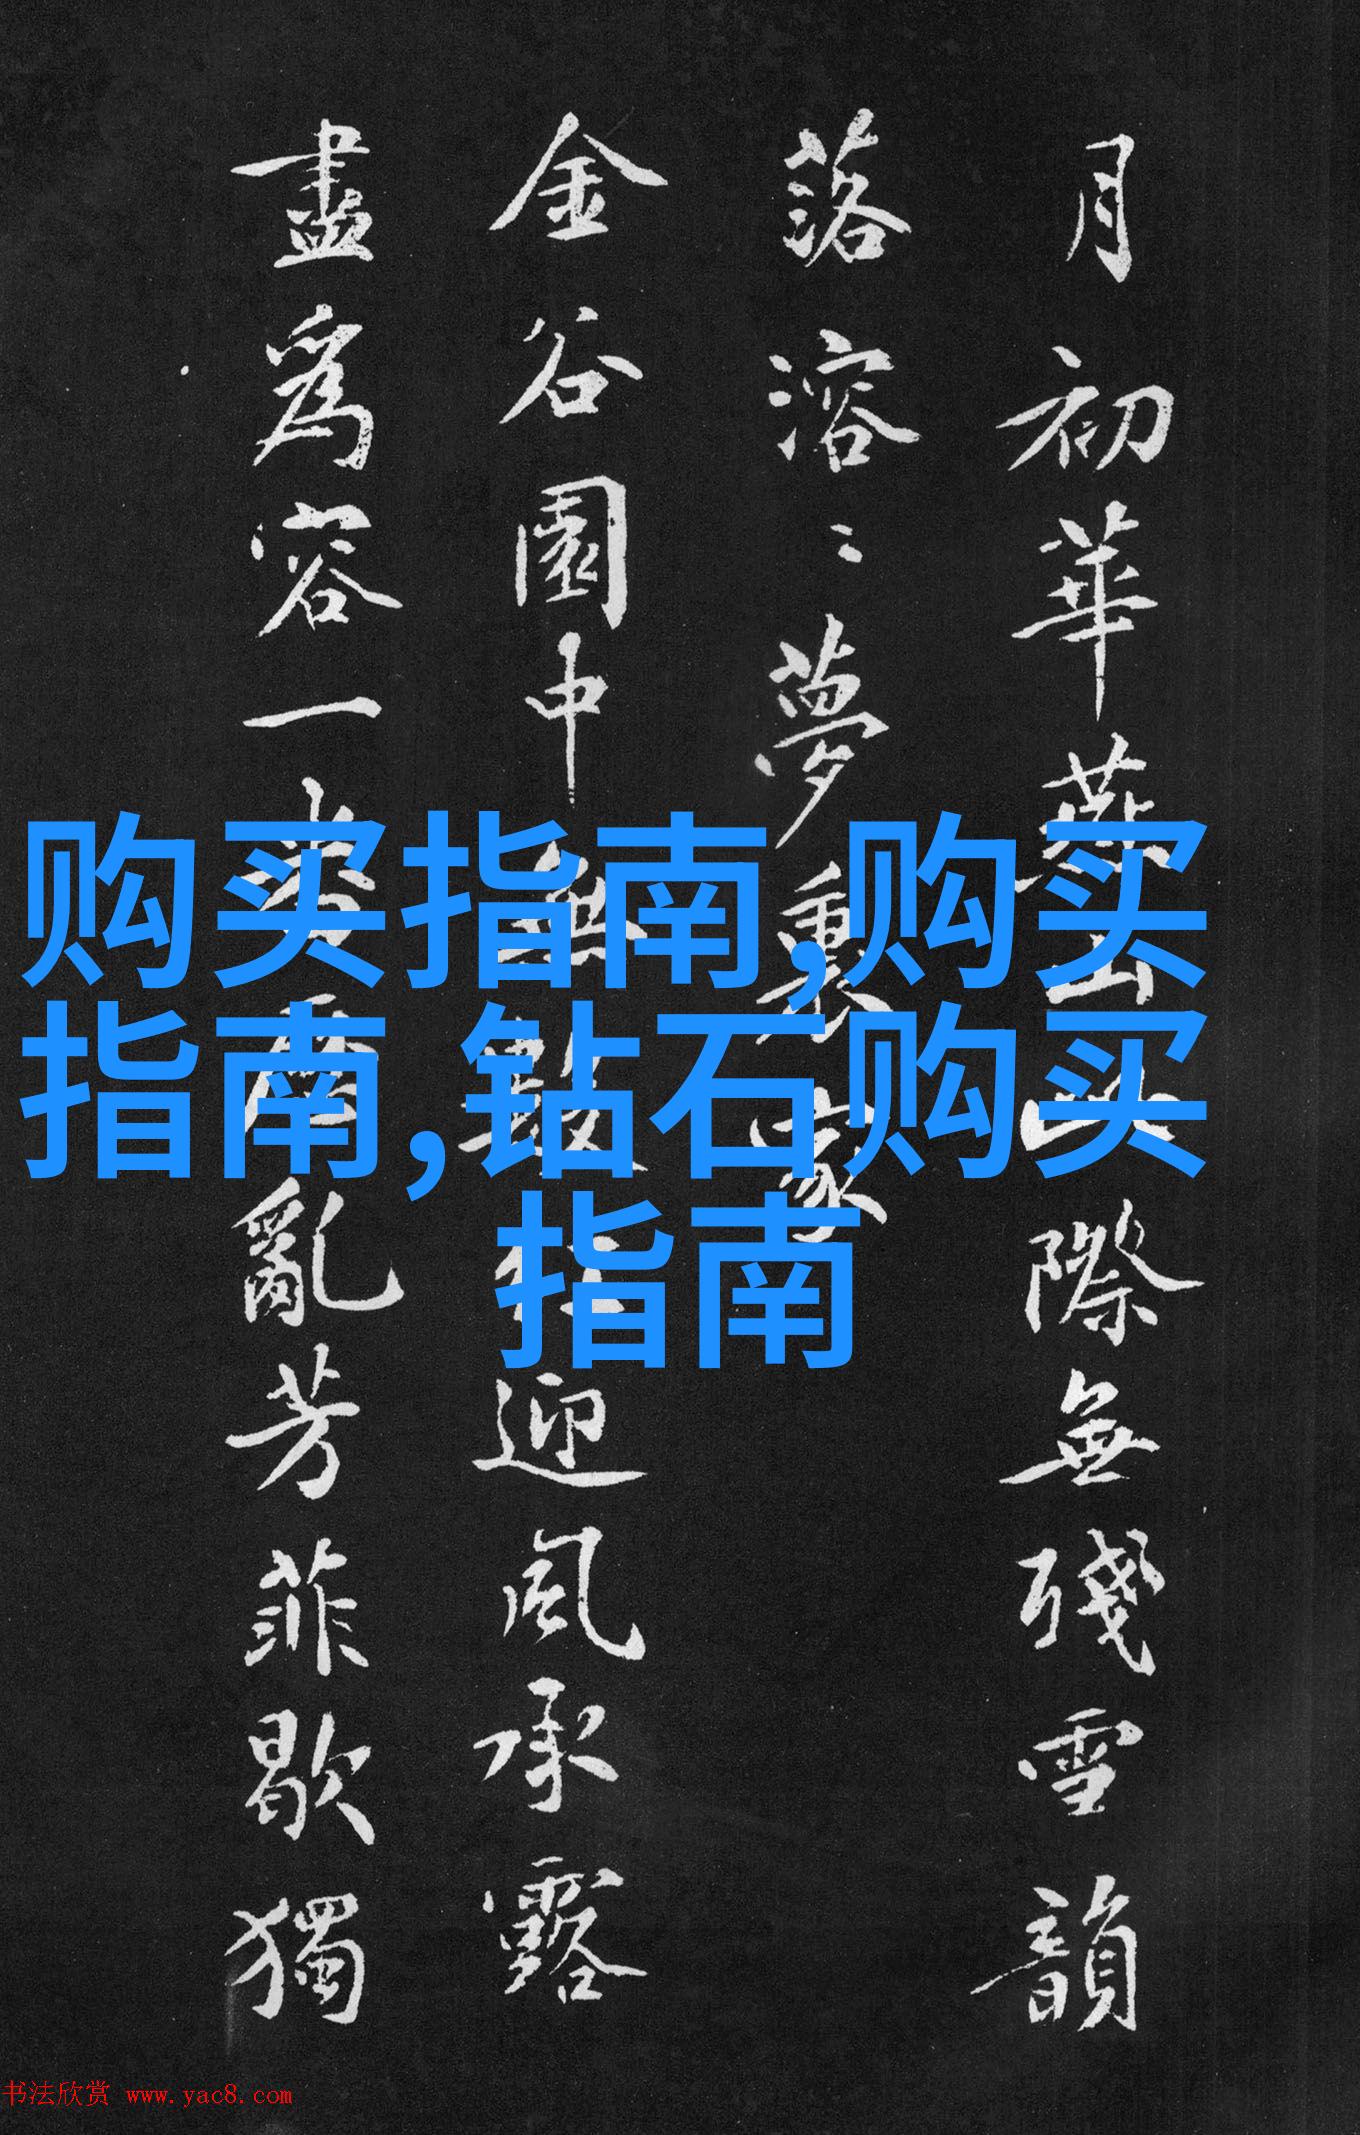 月初華燕山山際無殘雪韻
落溶〻夢裏家
金谷園中無數枝迎風承露
盡為容一為亂芳菲歇獨
购买指南,购买
指南,钻石购买
指南
书法欣赏 www.yac8.com